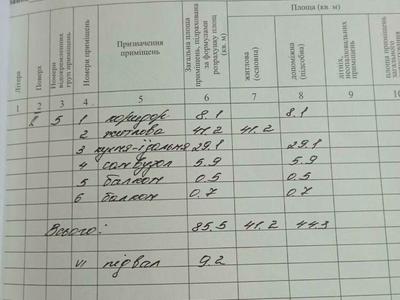 Площа (кв. м)
Літера
Поверх
Номери відокремлених груп приміщень
Номери приміщень
Призначення приміщень
Загальна площа приміщень, підрахована за формулами розрахунку площ (кв. м)
житлова (основна)
допоміжна (підсобна)
літніх, неопалювальних приміщень
площа приміщень загального
1 2 3 4 5 6 7 8 9 10
2 5 1 коридор 8.1 8.1
2 житлова 41.2 41.2
3 кухня-їдальня 29.1 29.1
4 санвузол 5.9 5.9
5 балкон 0.5 0.5
6 балкон 0.7 0.7
Всього: 85.5 41.2 44.3
VI підвал 9.2